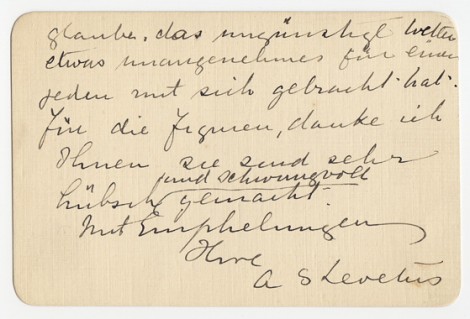 glaube, das ungünstige Wetter
etwas unangenehmes für einen
jeden mit sich gebracht hat.
Für die Figuren, danke ich
Ihnen sie sind sehr
und schwungvoll
hübsch gemacht.
Mit Empfehlungen
Ihre
A S Levetus